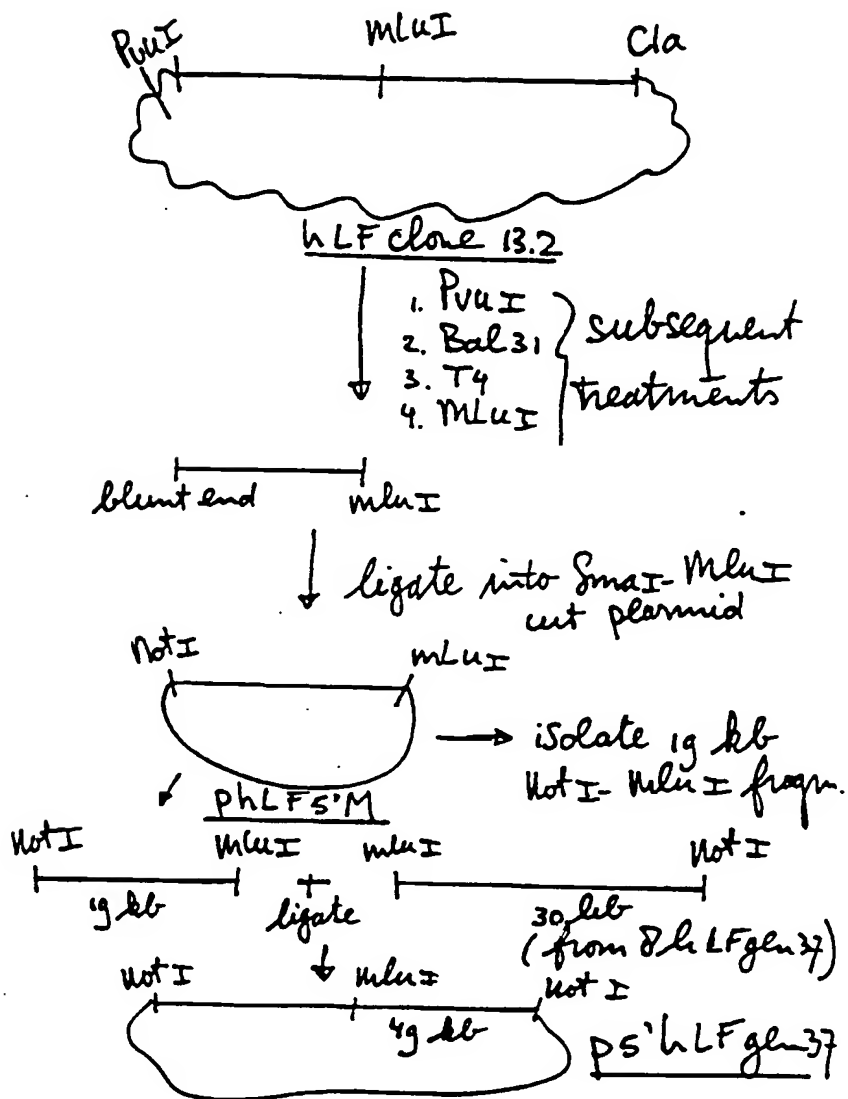 PvuI mluI Cla
hLF clone 13.2
1. PvuI
2. Bal31
3. T4
4. MLuI
subsequent
treatments
blunt end mluI
ligate into SmaI-MluI
cut plasmid
NotI mLuI
isolate 19 kb
NotI-MluI fragm.
phLF5'M
NotI MluI mluI NotI
19 kb ligate 30 kb
(from 8hLFgen37)
NotI mluI NotI
49 kb
p5'hLFgen37